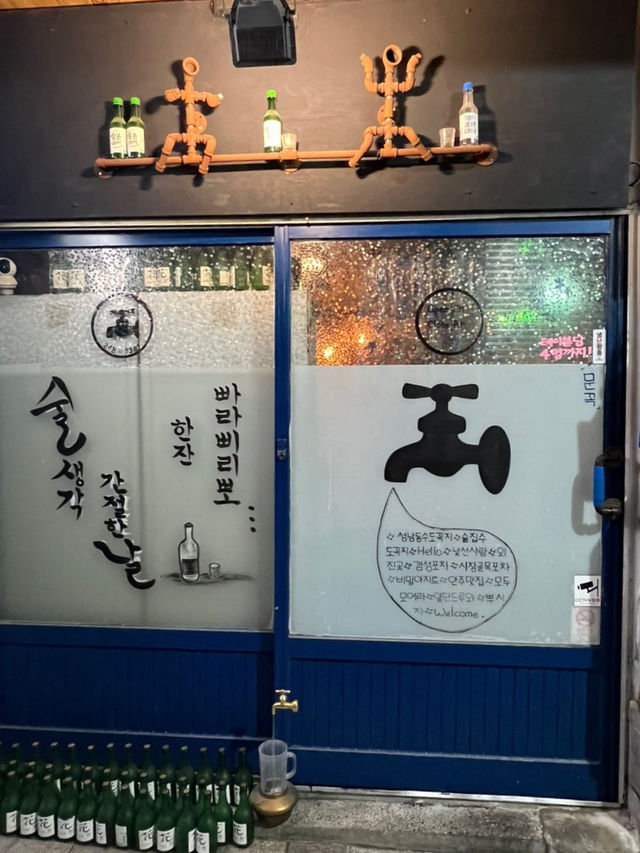 테이블당
4명까지!
술
생각
간절한
날
한잔
빠라삐리뽀
...
성남동수도꼭지 술집수
도꼭지 Hello 낯선사람 외
진곳 갬성포차 시장골목포차
비밀아지트 안주맛집 모두
모여라 일단드루와 뿌시
자 Welcome.
CCTV
花